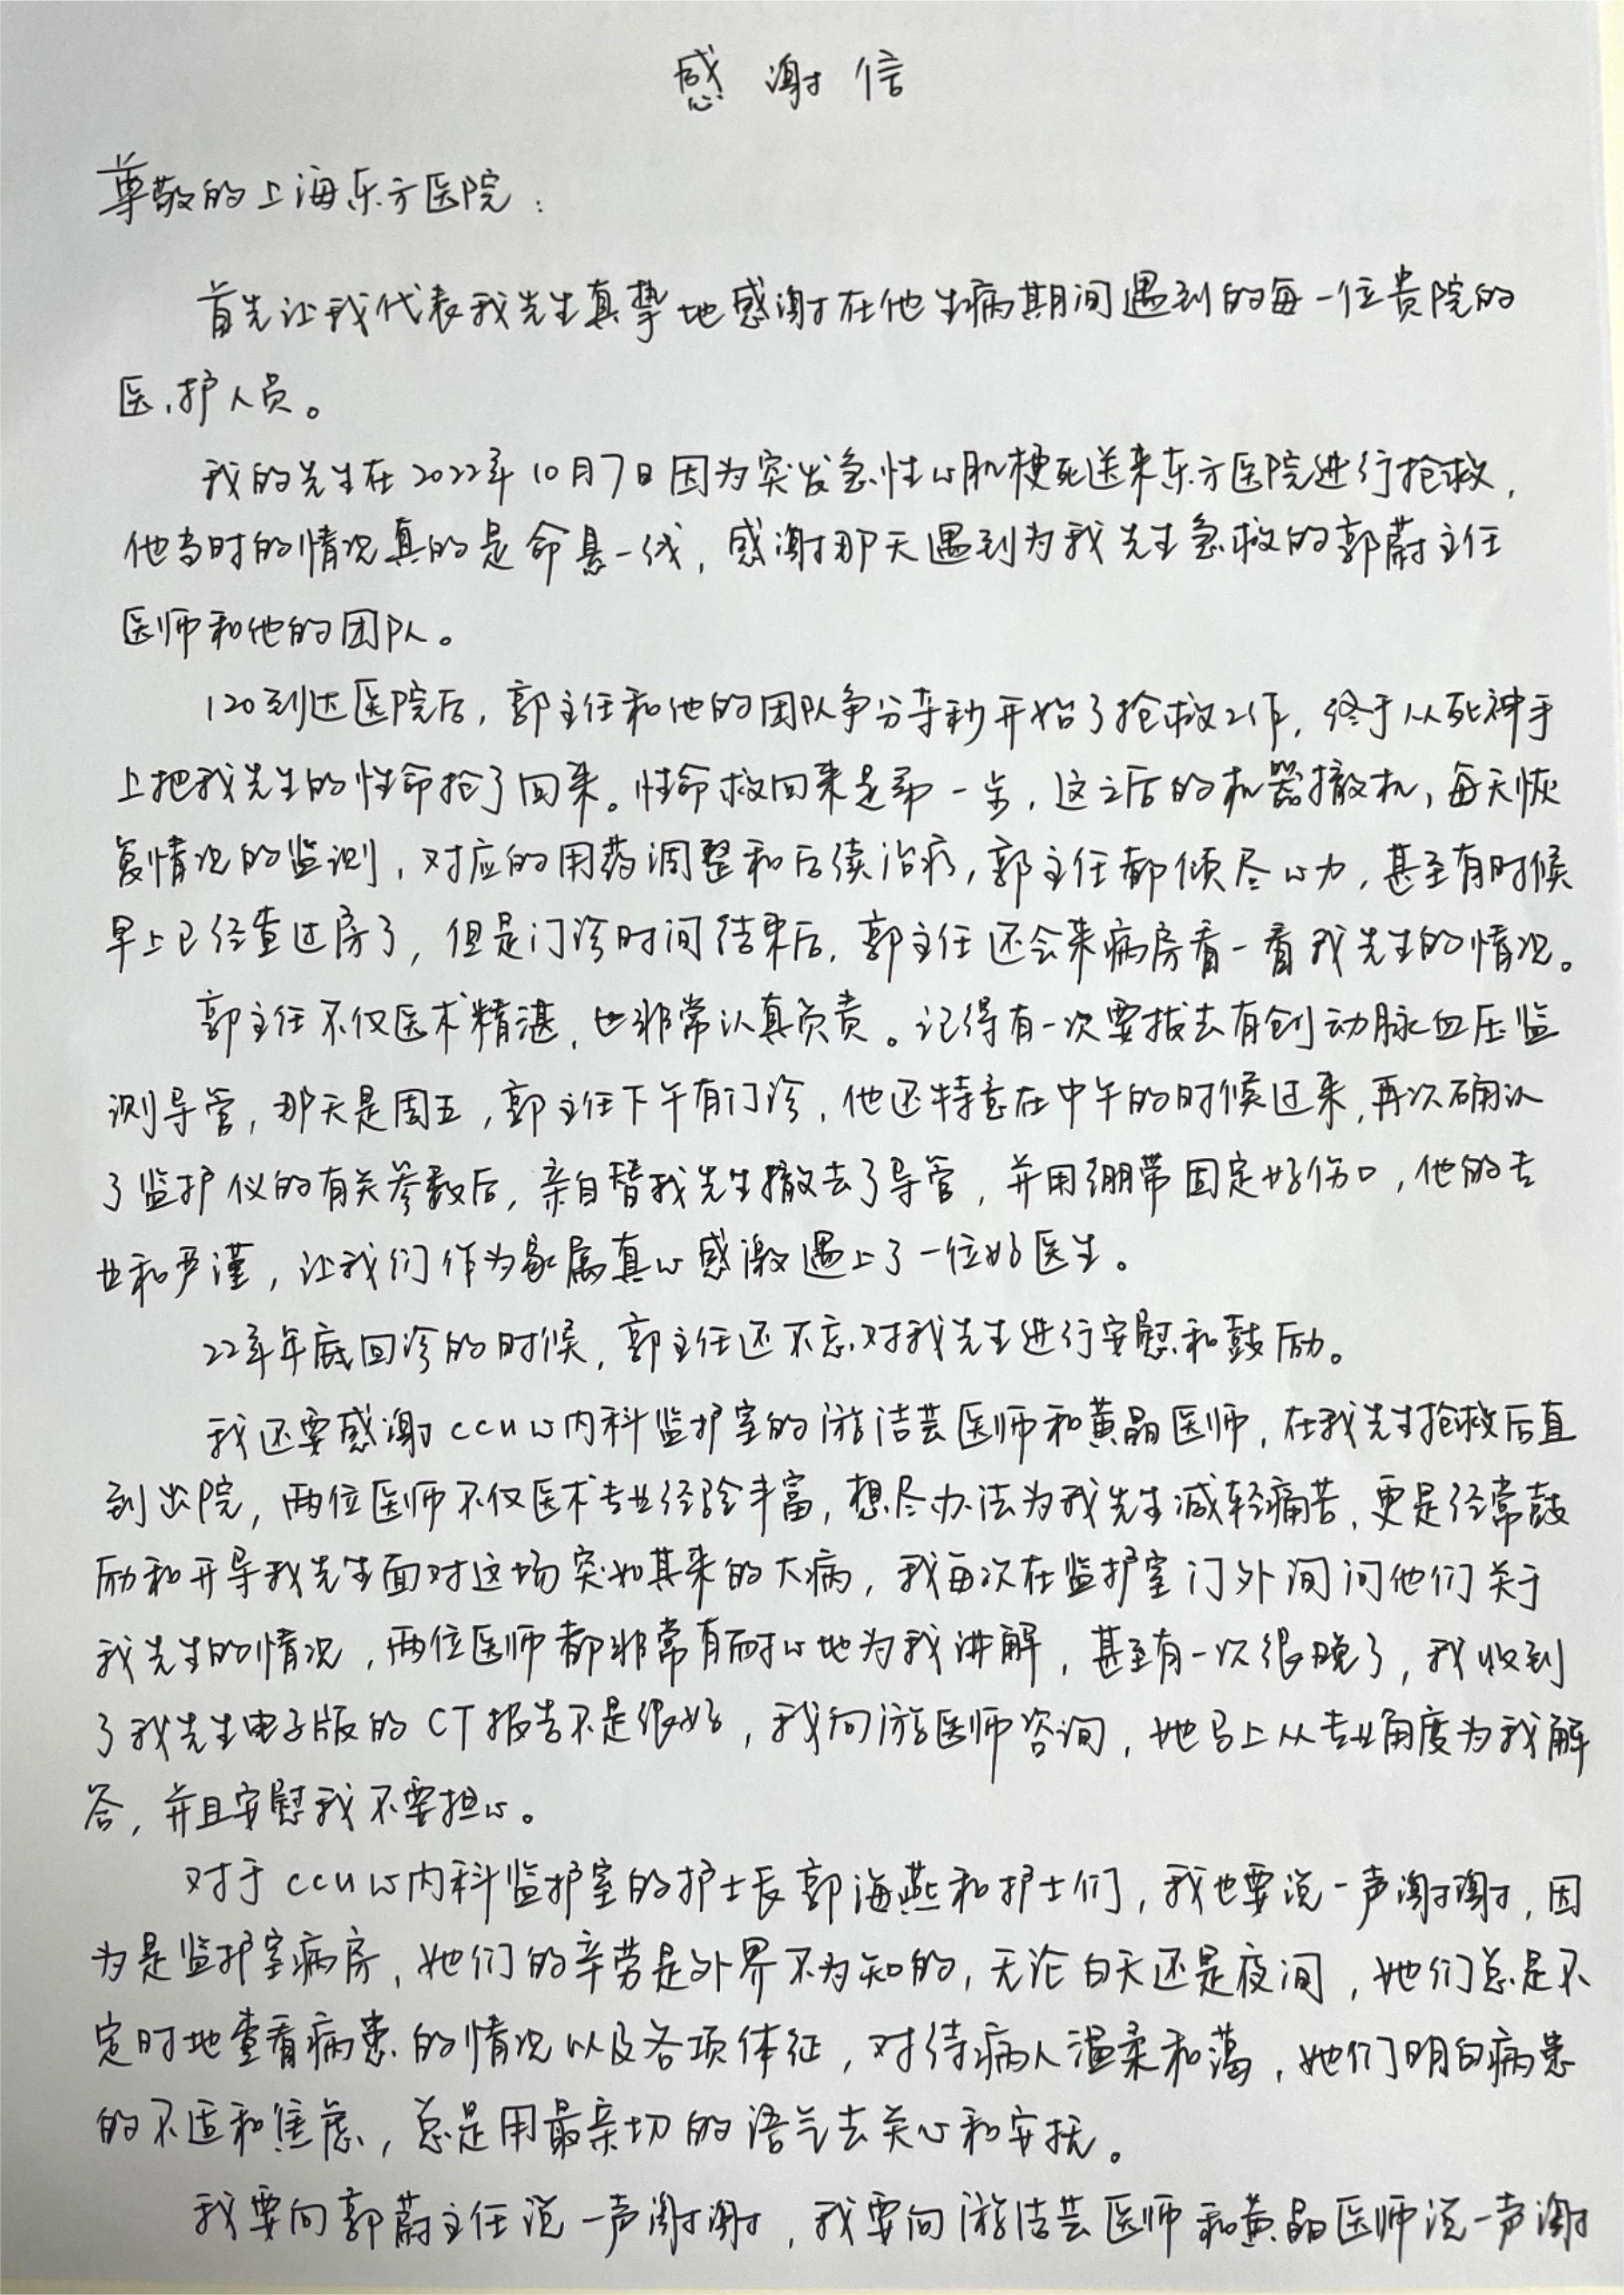 感谢信
尊敬的上海东方医院：
首先让我代表我先生真挚地感谢在他生病期间遇到的每一位贵院的
医护人员。
我的先生在2022年10月7日因为突发急性心肌梗死送来东方医院进行抢救，
他当时的情况真的是命悬一线，感谢那天遇到为我先生急救的郭蔚主任
医师和他的团队。
120到达医院后，郭主任和他的团队争分夺秒开始了抢救工作，终于从死神手
上把我先生的性命抢了回来。性命救回来是第一步，这之后的机器撤机，每天恢
复情况的监测，对应的用药调整和后续治疗，郭主任都倾尽心力，甚至有时候
早上已经查过房了，但是门诊时间结束后，郭主任还会来病房看一看我先生的情况。
郭主任不仅医术精湛，也非常认真负责。记得有一次要拔去有创动脉血压监
测导管，那天是周五，郭主任下午有门诊，他还特意在中午的时候过来，再次确认
了监护仪的有关参数后，亲自替我先生撤去了导管，并用绷带固定好伤口，他的专
业和严谨，让我们作为家属真心感激遇上了一位好医生。
22年年底回诊的时候，郭主任还不忘对我先生进行安慰和鼓励。
我还要感谢CCU心内科监护室的游洁芸医师和黄晶医师，在我先生抢救后直
到出院，两位医师不仅医术专业经验丰富，想尽办法为我先生减轻痛苦，更是经常鼓
励和开导我先生面对这场突如其来的大病，我每次在监护室门外询问他们关于
我先生的情况，两位医师都非常有耐心地为我讲解，甚至有一次很晚了，我收到
了我先生电子版的CT报告不是很好，我向游医师咨询，她马上从专业角度为我解
答，并且安慰我不要担心。
对于CCU心内科监护室的护士长郭海燕和护士们，我也要说一声谢谢，因
为是监护室病房，她们的辛劳是外界不为知的，无论白天还是夜间，她们总是不
定时地查看病患的情况以及各项体征，对待病人温柔和蔼，她们明白病患
的不适和焦虑，总是用最亲切的语气去关心和安抚。
我要向郭蔚主任说一声谢谢，我要向游洁芸医师和黄晶医师说一声谢